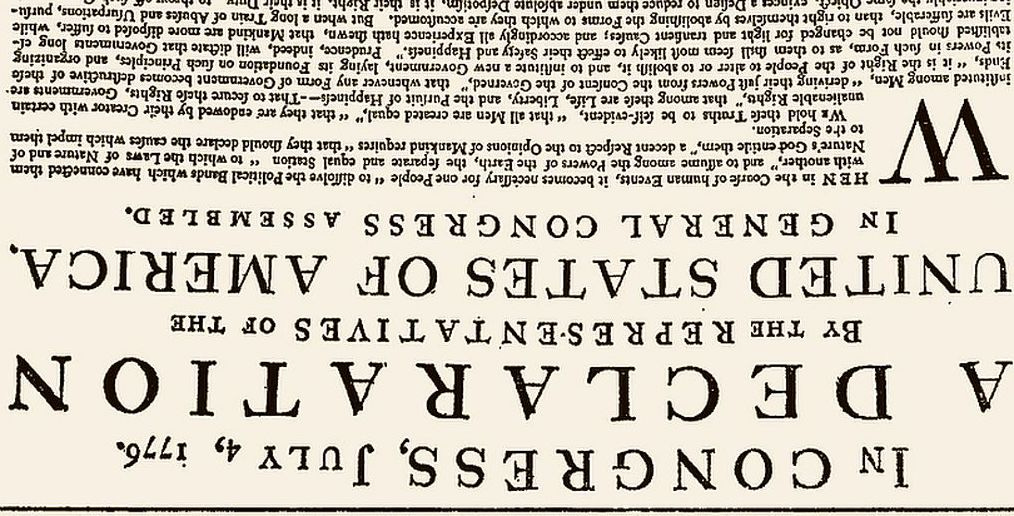 IN CONGRESS, JULY 4, 1776.
A DECLARATION
BY THE REPRESENTATIVES OF THE
UNITED STATES OF AMERICA,
IN GENERAL CONGRESS ASSEMBLED.
WHEN in the Courſe of human Events, it becomes neceſſary for one People “ to diſſolve the Political Bands which have connected them
with another,” and to aſſume among the Powers of the Earth, the ſeparate and equal Station “ to which the Laws of Nature and of
Nature's God entitle them,” a decent Reſpect to the Opinions of Mankind requires “ that they ſhould declare the cauſes which impel them
to the Separation.
We hold theſe Truths to be ſelf-evident, “ that all Men are created equal,” “ that they are endowed by their Creator with certain
unalienable Rights,” that among theſe are Life, Liberty, and the Purſuit of Happineſs---That to ſecure theſe Rights, Governments are
inſtituted among Men, “ deriving their juſt Powers from the Conſent of the Governed,” that whenever any Form of Government becomes deſtructive of theſe
Ends, “ it is the Right of the People to alter or to aboliſh it, and to inſtitute a new Government, laying its Foundation on ſuch Principles, and organizing
its Powers in ſuch Form, as to them ſhall ſeem moſt likely to effect their Safety and Happineſs.” Prudence, indeed, will dictate that Governments long eſ-
tabliſhed ſhould not be changed for light and tranſient Cauſes; and accordingly all Experience hath ſhewn, that Mankind are more diſpoſed to ſuffer, while
Evils are ſufferable, than to right themſelves by aboliſhing the Forms to which they are accuſtomed. But when a long Train of Abuſes and Uſurpations, purſu-
the ſame Object, evinces a Deſign to reduce them under abſolute Deſpotiſm, it is their Right, it is their Duty, to throw off ſuch